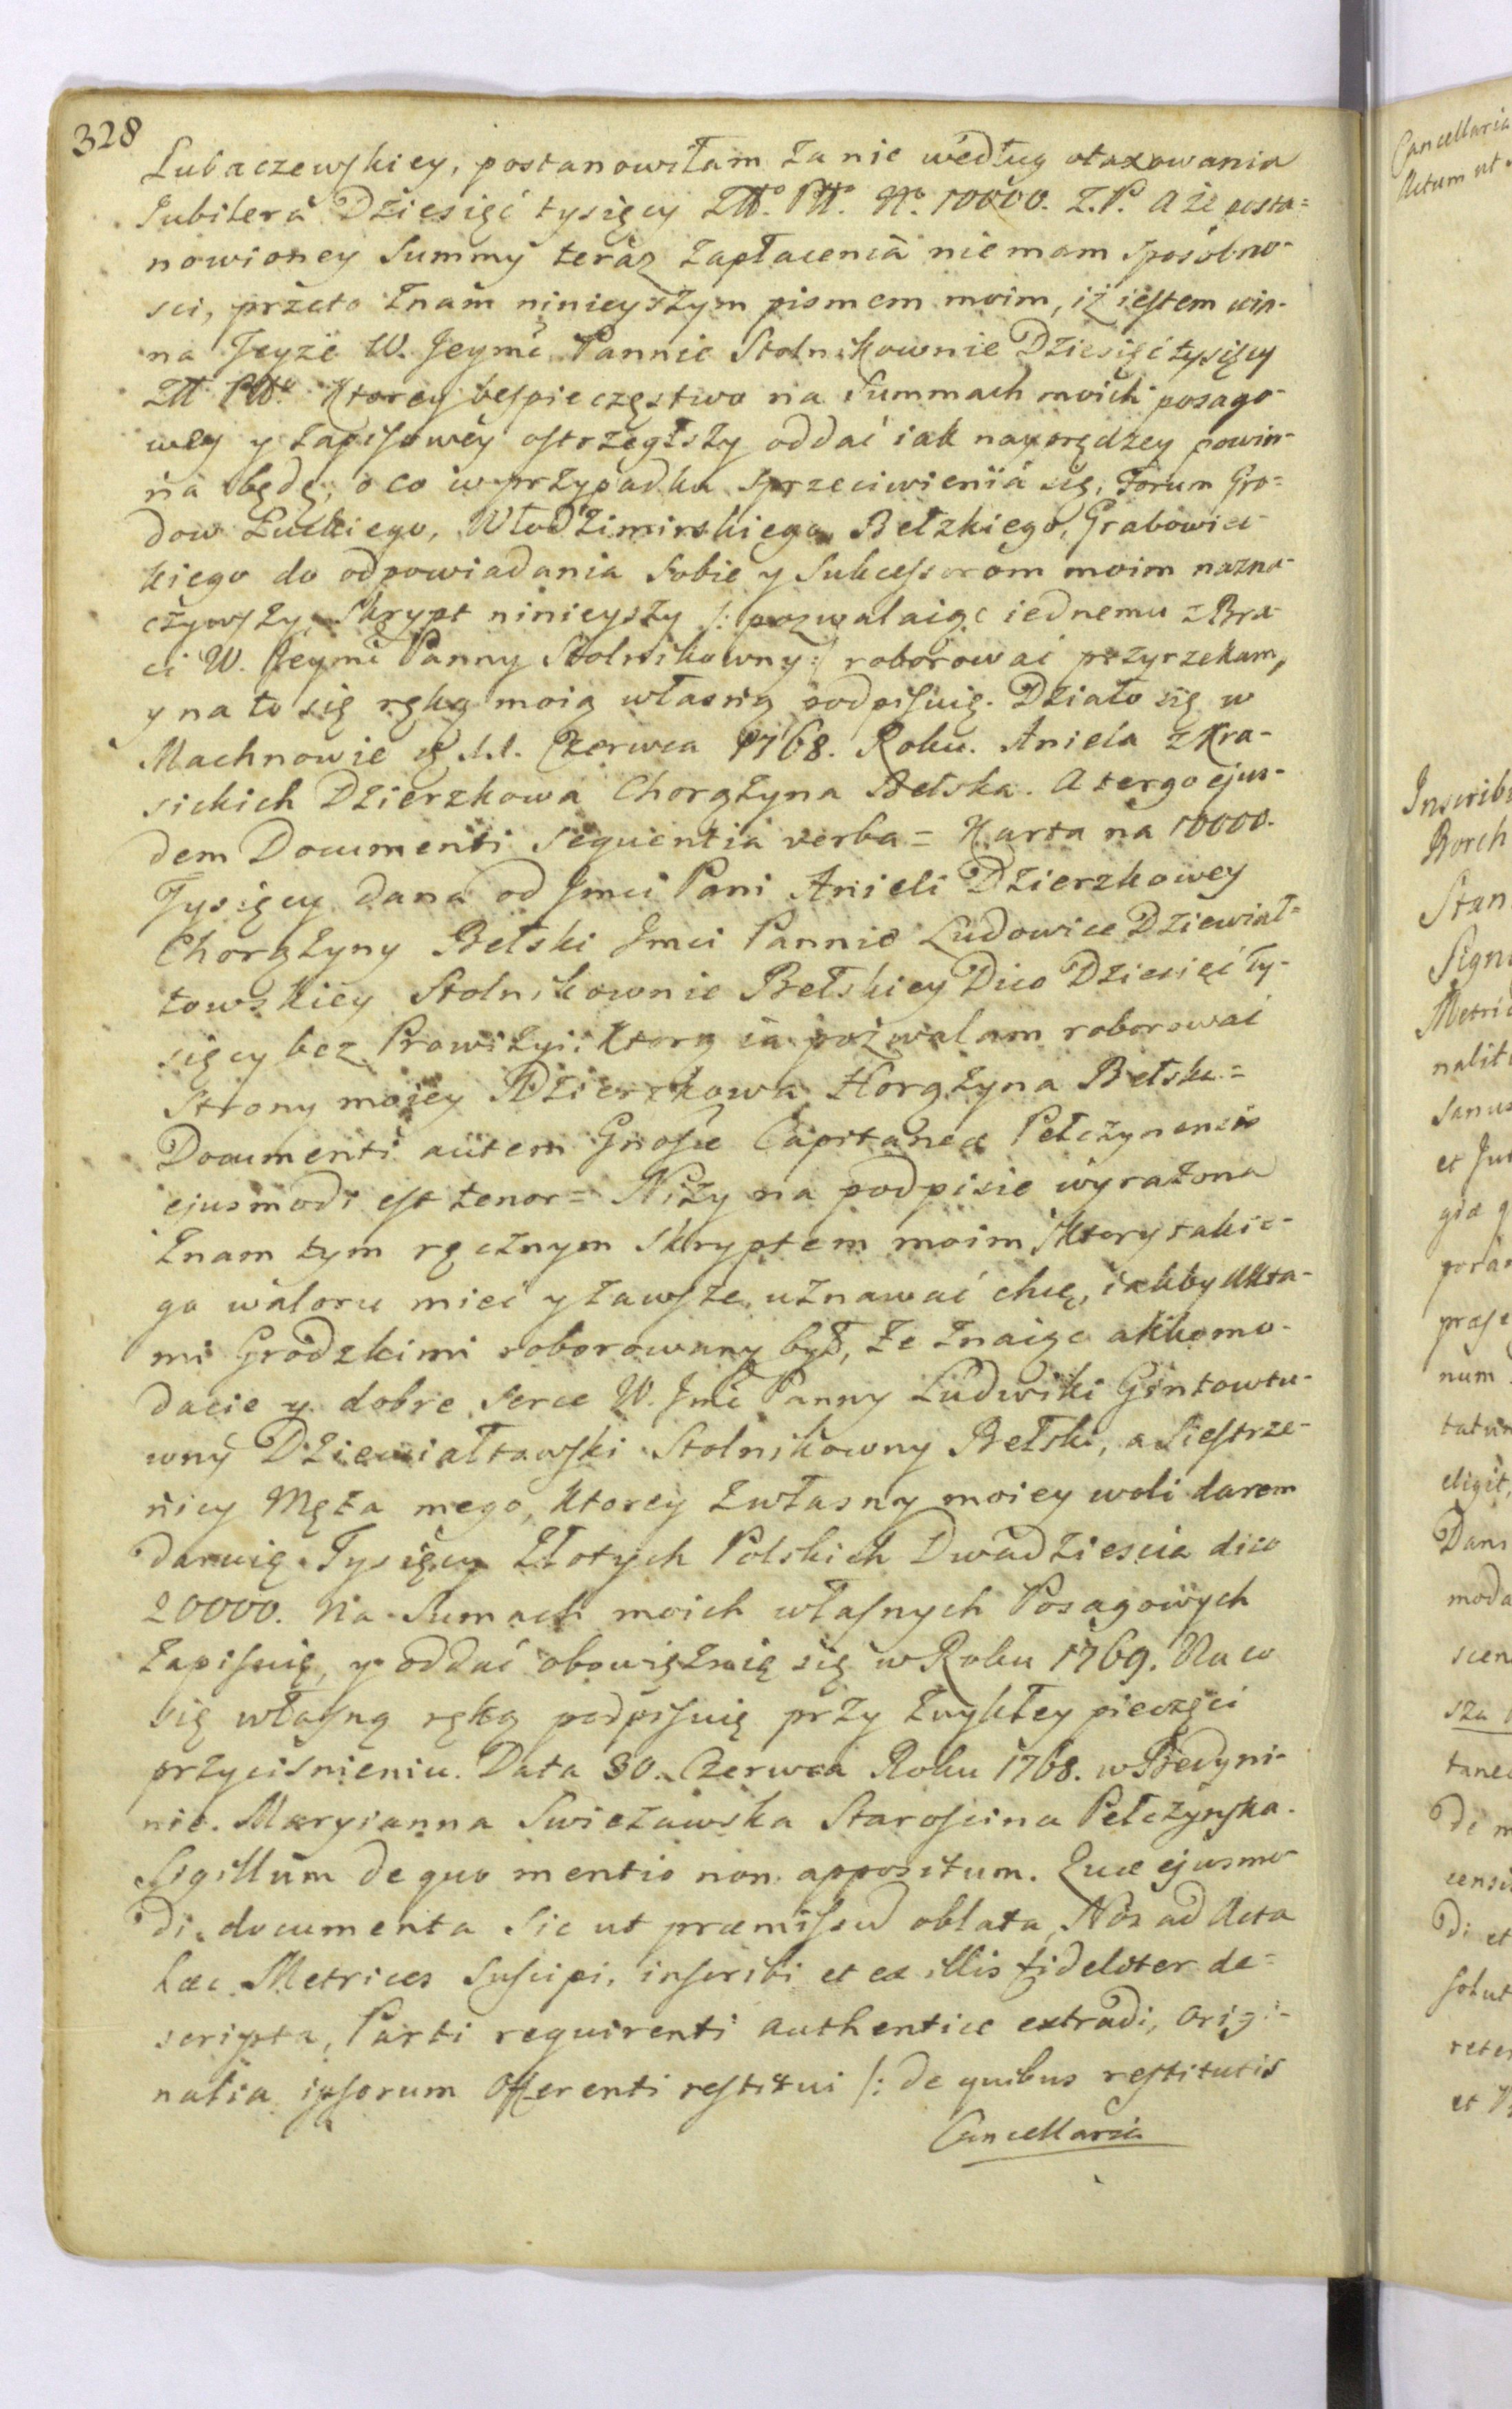 328
Lubaczewskiey, postanowiłam za nie według otaxowania
Jubilera Dziesięć tysięcy Złł° Płł° N° 10000. Z.P. A że posta=
nowioney Summy teraz zapłacenia nie mam sposobno-
sci, przeto znam ninieyszym pismem moim, iż iestem win-
na Jeyże W. Jeymć Pannie Stolnikownie Dziesięć tysięcy
Złł Płł° Ktorey bespieczęstwo na Summach moich posago-
wey y zapisowey ostrzegłszy oddać iak nayprędzey powin-
na będę, o co w przypadku sprzeciwienia się, Forum Gro=
dow Łuckiego, Włodzimirskiego, Bełzkiego, Grabowiec-
kiego do odpowiadania sobie y Sukcessorom moim nazna-
czywszy, Skrypt ninieyszy /: pozwalaiąc iednemu z Bra-
ci W. Jeymć Panny Stolnikowny :/ roborować przyrzekam,
y na to się ręką moią własną podpisuię. Działo się w
Machnowie d. 11. Czerwca 1768. Roku. Aniela z Kra-
sickich Dzierzkowa Chorążyna Bełska. A tergo ejus-
dem Documenti sequentia verba = Karta na 10000.
Tysięcy dana od Jmci Pani Anieli Dzierzkowey
Chorążyny Bełski Jmci Pannie Ludowice Dziewiał=
towskiey Stolnikownie Bełskiey Dico Dziesięć Ty-
sięcy bez Prowizyi: Ktorą ia pozwalam roborować
Strony moiey Dzierzkowa Horążyna Bełska =
Documenti autem Gnosæ Capitaneæ Pełczynensis
ejusmodi est tenor = Niży na podpisie wyrażona
Znam tym ręcznym skryptem moim, ktory takie-
go waloru mieć y zawsze uznawać chcę, iakby Akta-
mi Grodzkimi roborowany był, że znaiąc akkomo-
dacie y dobre serce W. Jmć Panny Ludwiki Gintowtu-
wny Dziewiałtowski Stolnikowny Bełski, a Siestrze-
nicy Męża mego, ktorey z własny moiey woli darem
daruię Tysięcy Złotych Polskich Dwadziescia dico
20000. Na Sumach moich własnych Posagowych
zapisuię, y oddać obowięzuię się w Roku 1769. Na co
się własną ręką podpisuię przy zwykłey pieczęci
przycisnieniu. Data 30. Czerwca Roku 1768. w
nie. Maryianna Swieżawska Starościna Pełczyńska.
Sigillum de quo mentio non appositum. Quæ ejusmo-
di documenta sic ut præmissum oblata, Nos ad Acta
hæc Metrices suscipi, inscribi et ex illis fideliter de=
scripta, Parti requirenti authentice extradi, Origi-
nalia ipsorum Offerenti restitui /: de quibus restitutis
Cancellaria
Cancellaria
Actum ut
Inscrib
Borch
Stan
Sign
Metric
nalit
et Ju
præse
num
eligit,
Dans
moda
scen
sza
tane
de m
di et
solut